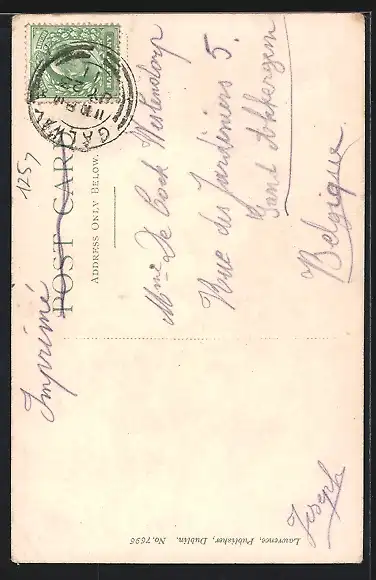 1257
GALWAY
POST CARD
ADDRESS ONLY BELOW.
Imprimé
Mme De Cock Westendorp
Rue des Jardiniers 5.
Gand Akkergem
Belgique
Joseph
Lawrence, Publisher, Dublin. No. 7696